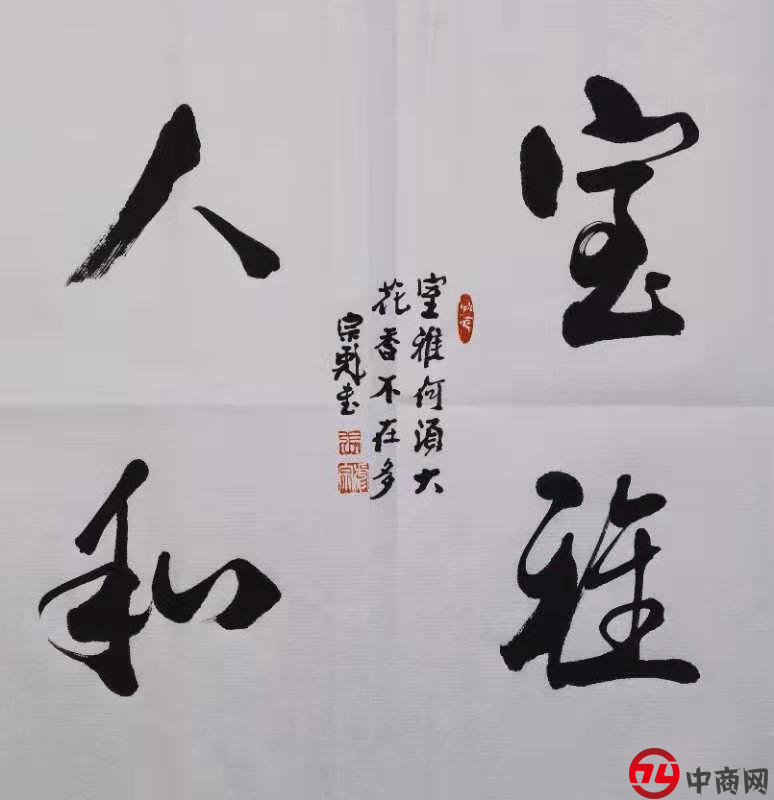 室雅
人和
室雅何须大
花香不在多
宗彪书
中商网